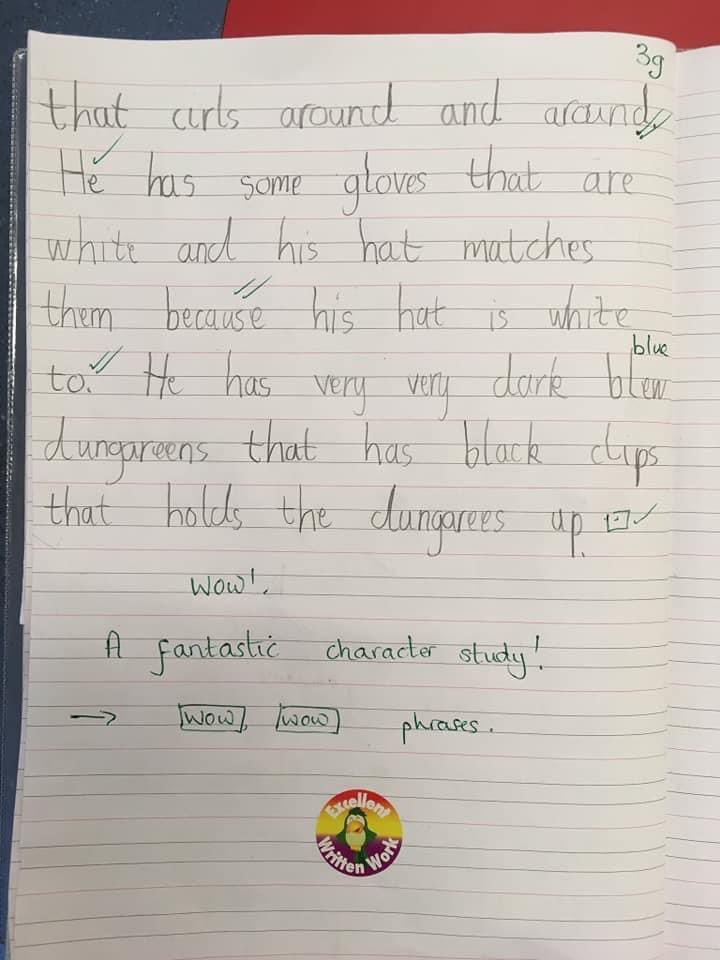 3g
that curls around and around.
He has some gloves that are
white and his hat matches
them because his hat is white
to. He has very very dark blew
blue
dungareens that has black clips
that holds the dungarees up.
wow!.
A fantastic character study!
→ wow, wow phrases.
Excellent
Written Work